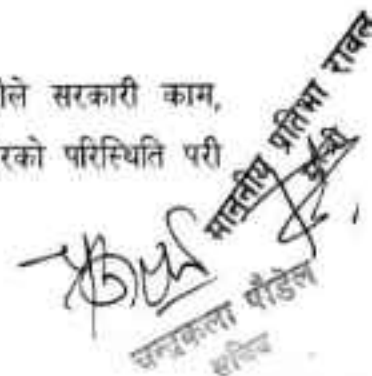 ीले सरकारी काम,
रको परिस्थिति परी
माननीय प्रतिभा रावल
मन्त्री
चन्द्रकला पौडेल
सचिव